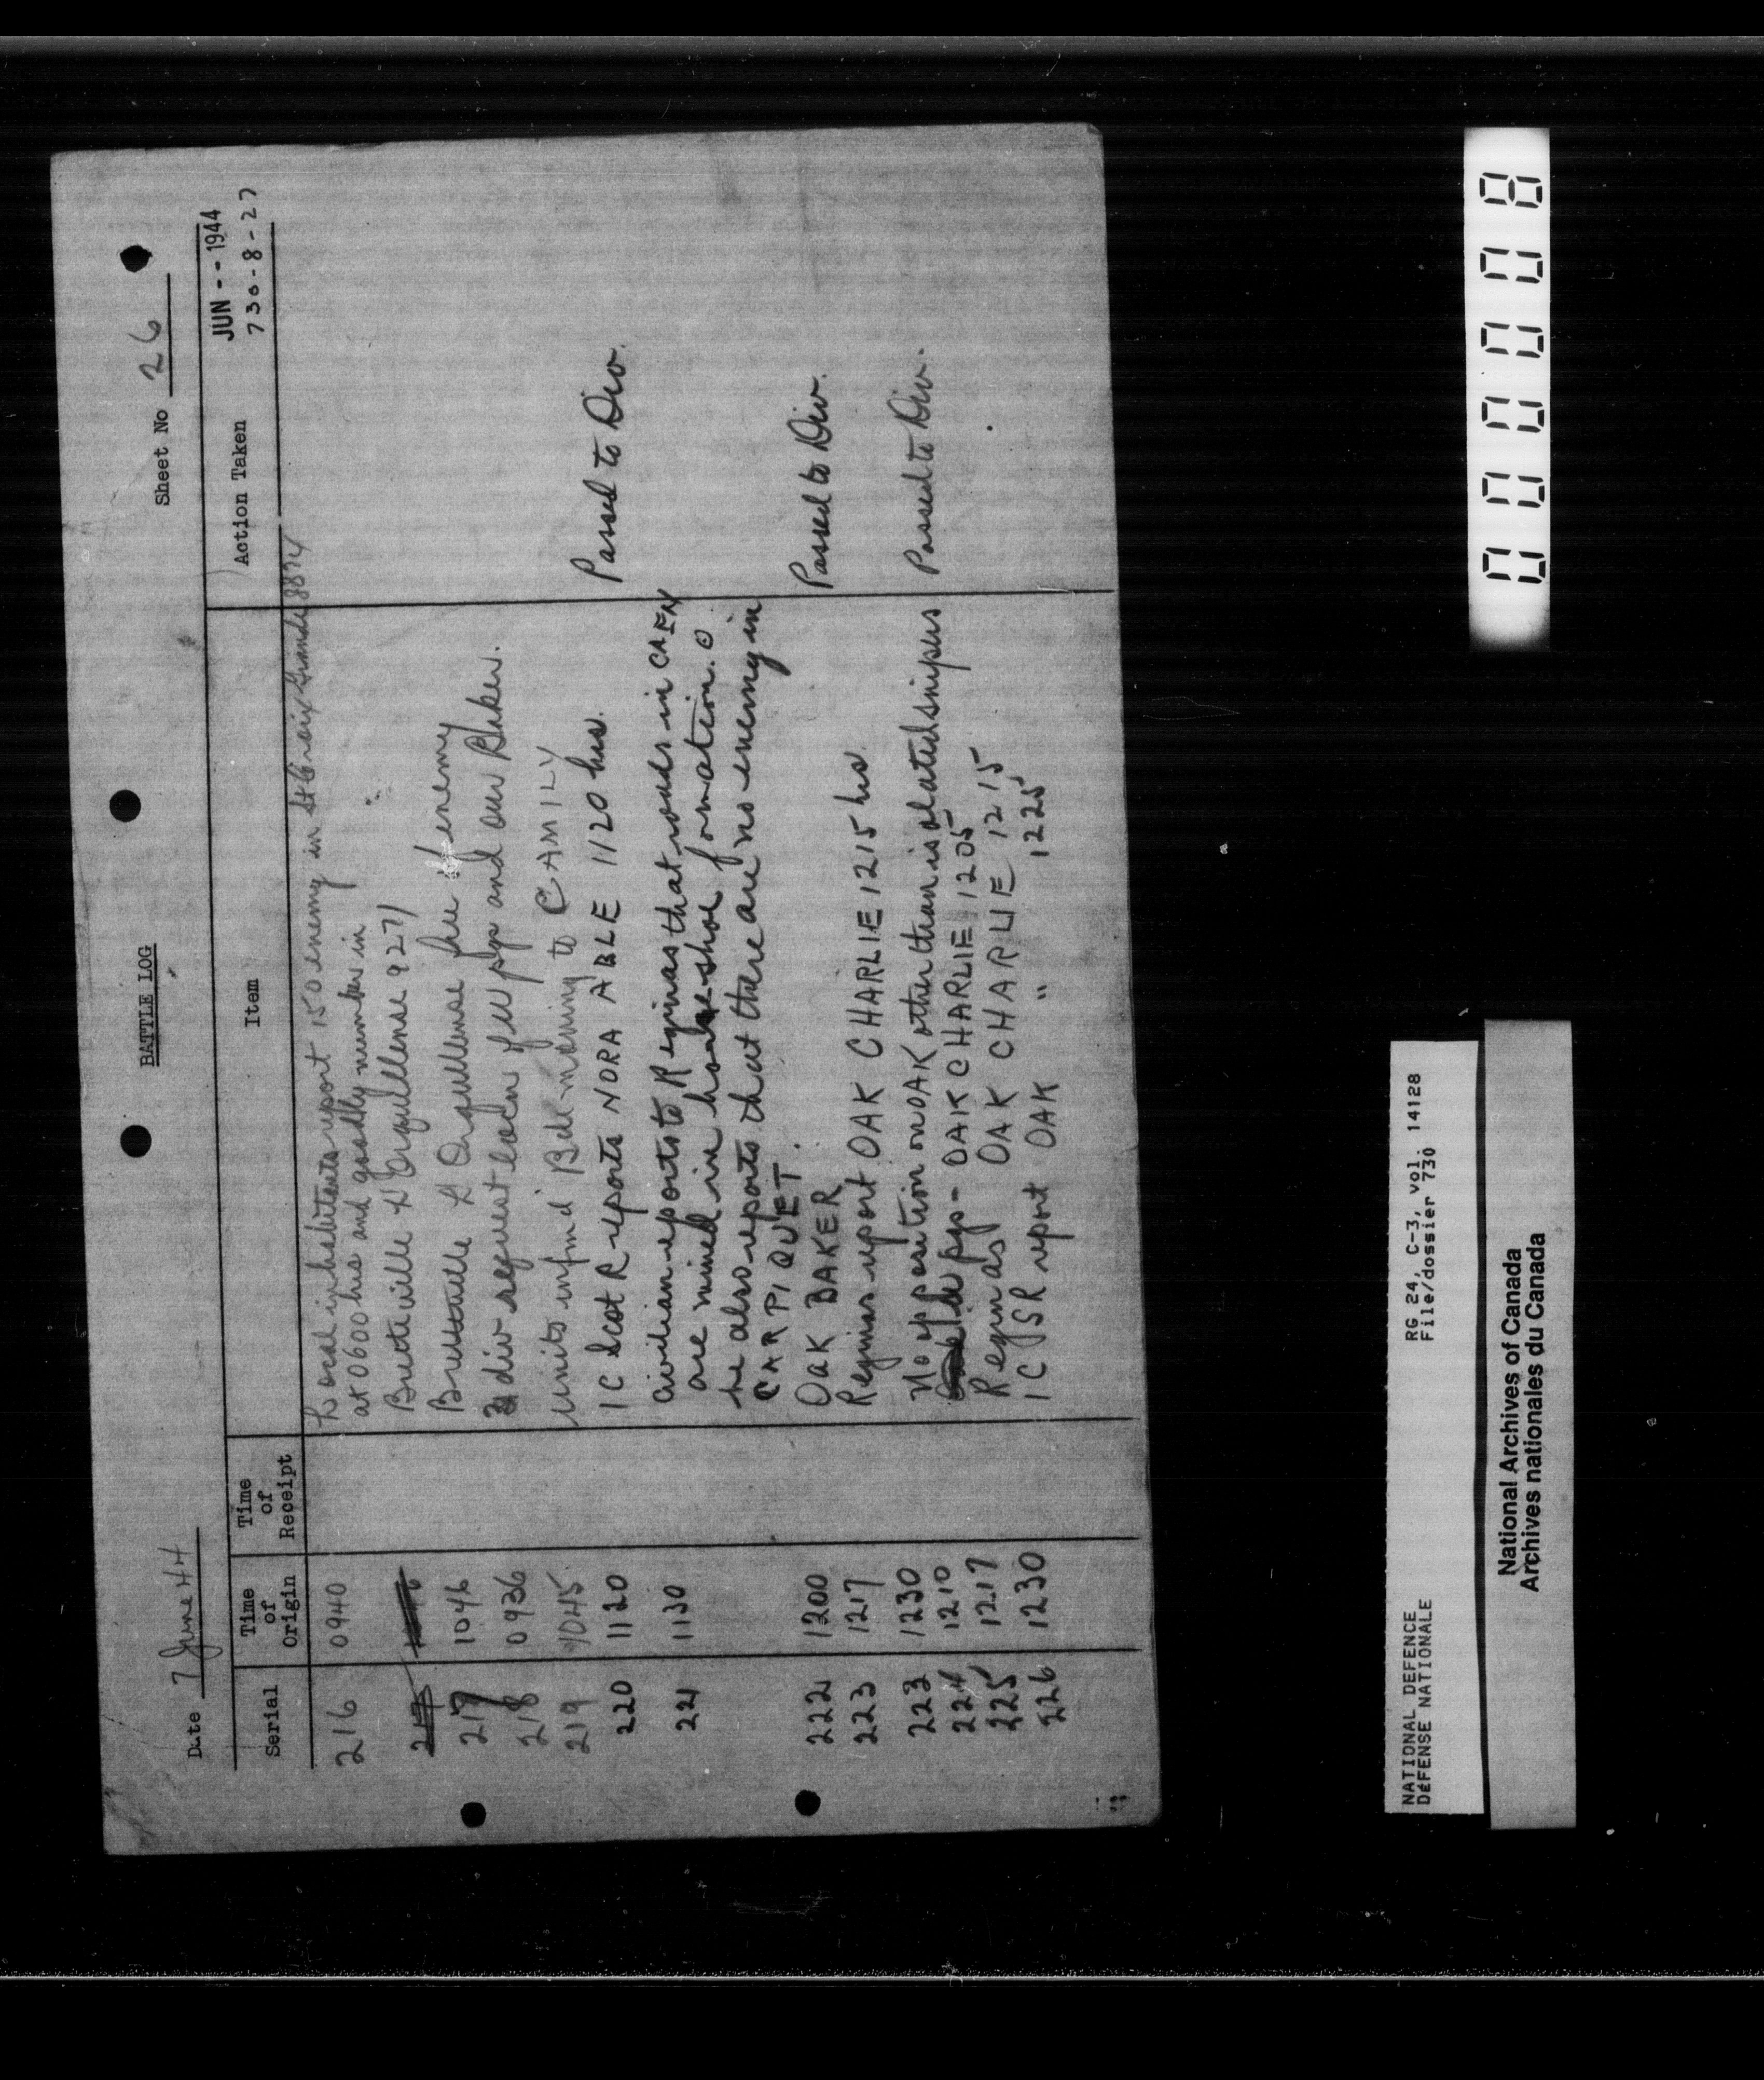 BATTLE LOG
Date 7 June 44
Sheet No 26
Serial
Time of Origin
Time of Receipt
Item
Action Taken
JUN -- 1944
730-8-27
216 0940 Local inhabitants report 150 enemy in St Croix Grande 8874
at 0600 hrs and goodly number in
Bretteville L'Orguilleuse 9271
217 1046 Bretteville L'Orguilleuse free of enemy
218 0936 3 div request locn fwd pps and our Baker.
219 1045 Units infmd Bde moving to CAMILY
220 1120 1 C Scot R reports NORA ABLE 1120 hrs. Passed to Div.
221 1130 Civilian reports to Reginas that roads in CAEN
are mined in horse-shoe formation.
he also reports that there are no enemy in
CARPIQUET.
222 1200 OAK BAKER Passed to Div.
223 1217 Reginas report OAK CHARLIE 1215 hrs.
223 1230 No opposition on OAK other than isolated snipers Passed to Div.
224 1210 - OAK CHARLIE 1205
225 1217 Reginas OAK CHARLIE 1215
226 1230 1 C S R report OAK " 1225
NATIONAL DEFENCE RG 24, C-3, vol. 14128
DÉFENSE NATIONALE File/dossier 730
National Archives of Canada
Archives nationales du Canada
000008